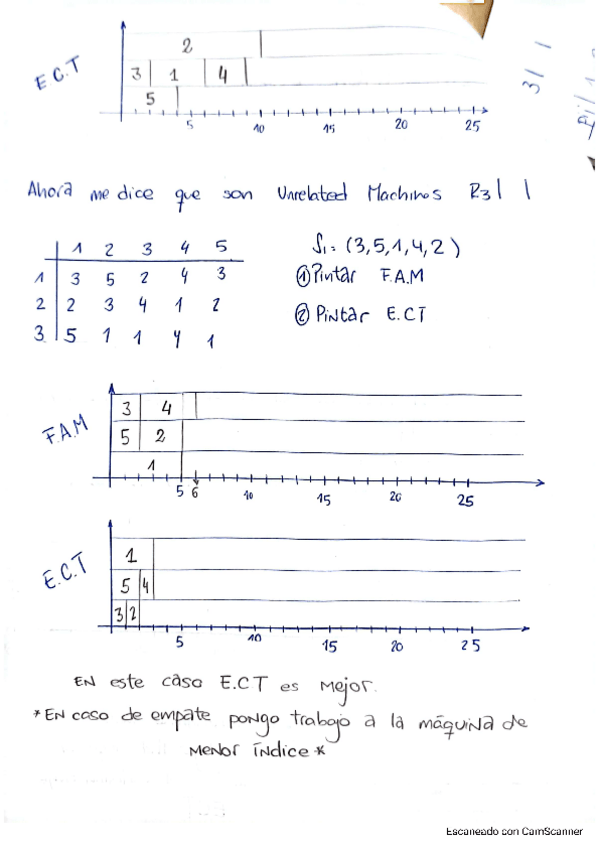 E.C.T
2
3 1 4
5
5 10 15 20 25
3| |
Ahora me dice que son Unrelated Machines R3| |
1 2 3 4 5
1 3 5 2 4 3
2 2 3 4 1 2
3 5 1 1 4 1
S1 = (3,5,1,4,2)
① Pintar F.A.M
② Pintar E.CT
F.A.M
3 4
5 2
1
5 6 10 15 20 25
E.C.T
1
5 4
3 2
5 10 15 20 25
EN este caso E.CT es mejor.
*EN caso de empate pongo trabajo a la máquina de
menor índice*
Escaneado con CamScanner